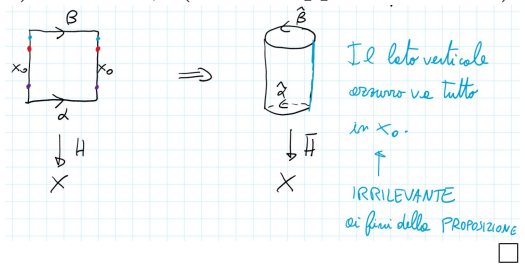 β
x₀ x₀
α
H
X
⟹
β̂
α̂
H̅
X
Il lato verticale
azzurro va tutto
in x₀.
IRRILEVANTE
ai fini della PROPOSIZIONE